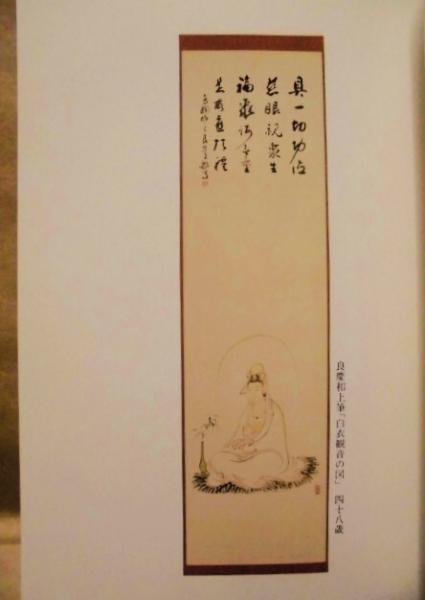 具一切功徳
慈眼視衆生
福聚海無量
是故應頂禮
良慶和上筆「白衣観音の図」 四十八歳